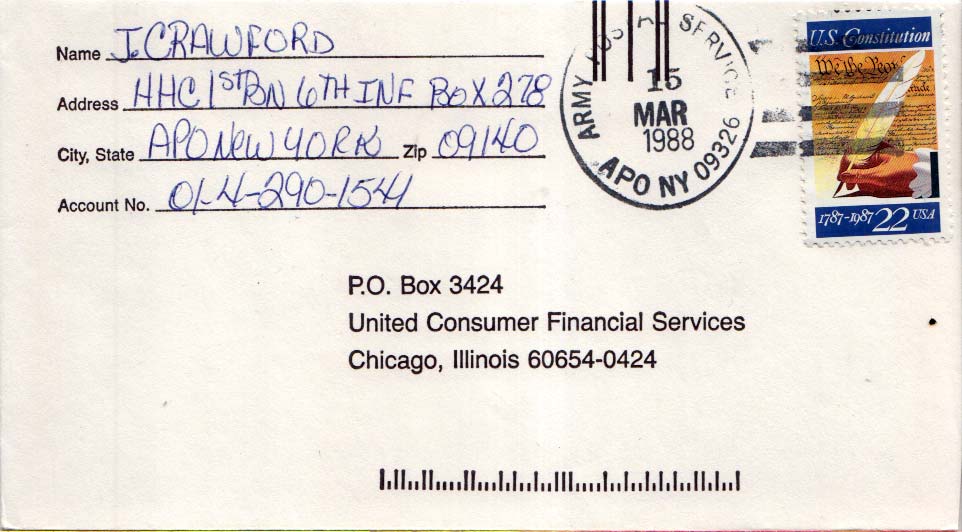 Name J. CRAWFORD
Address HHC 1st BN 6TH INF BOX 278
City, State APO NEW YORK Zip 09140
Account No. 01-4-290-1541
ARMY POSTAL SERVICE
15
MAR
1988
APO NY 09326
U.S. Constitution
We the People
1787-1987 22 USA
P.O. Box 3424
United Consumer Financial Services
Chicago, Illinois 60654-0424